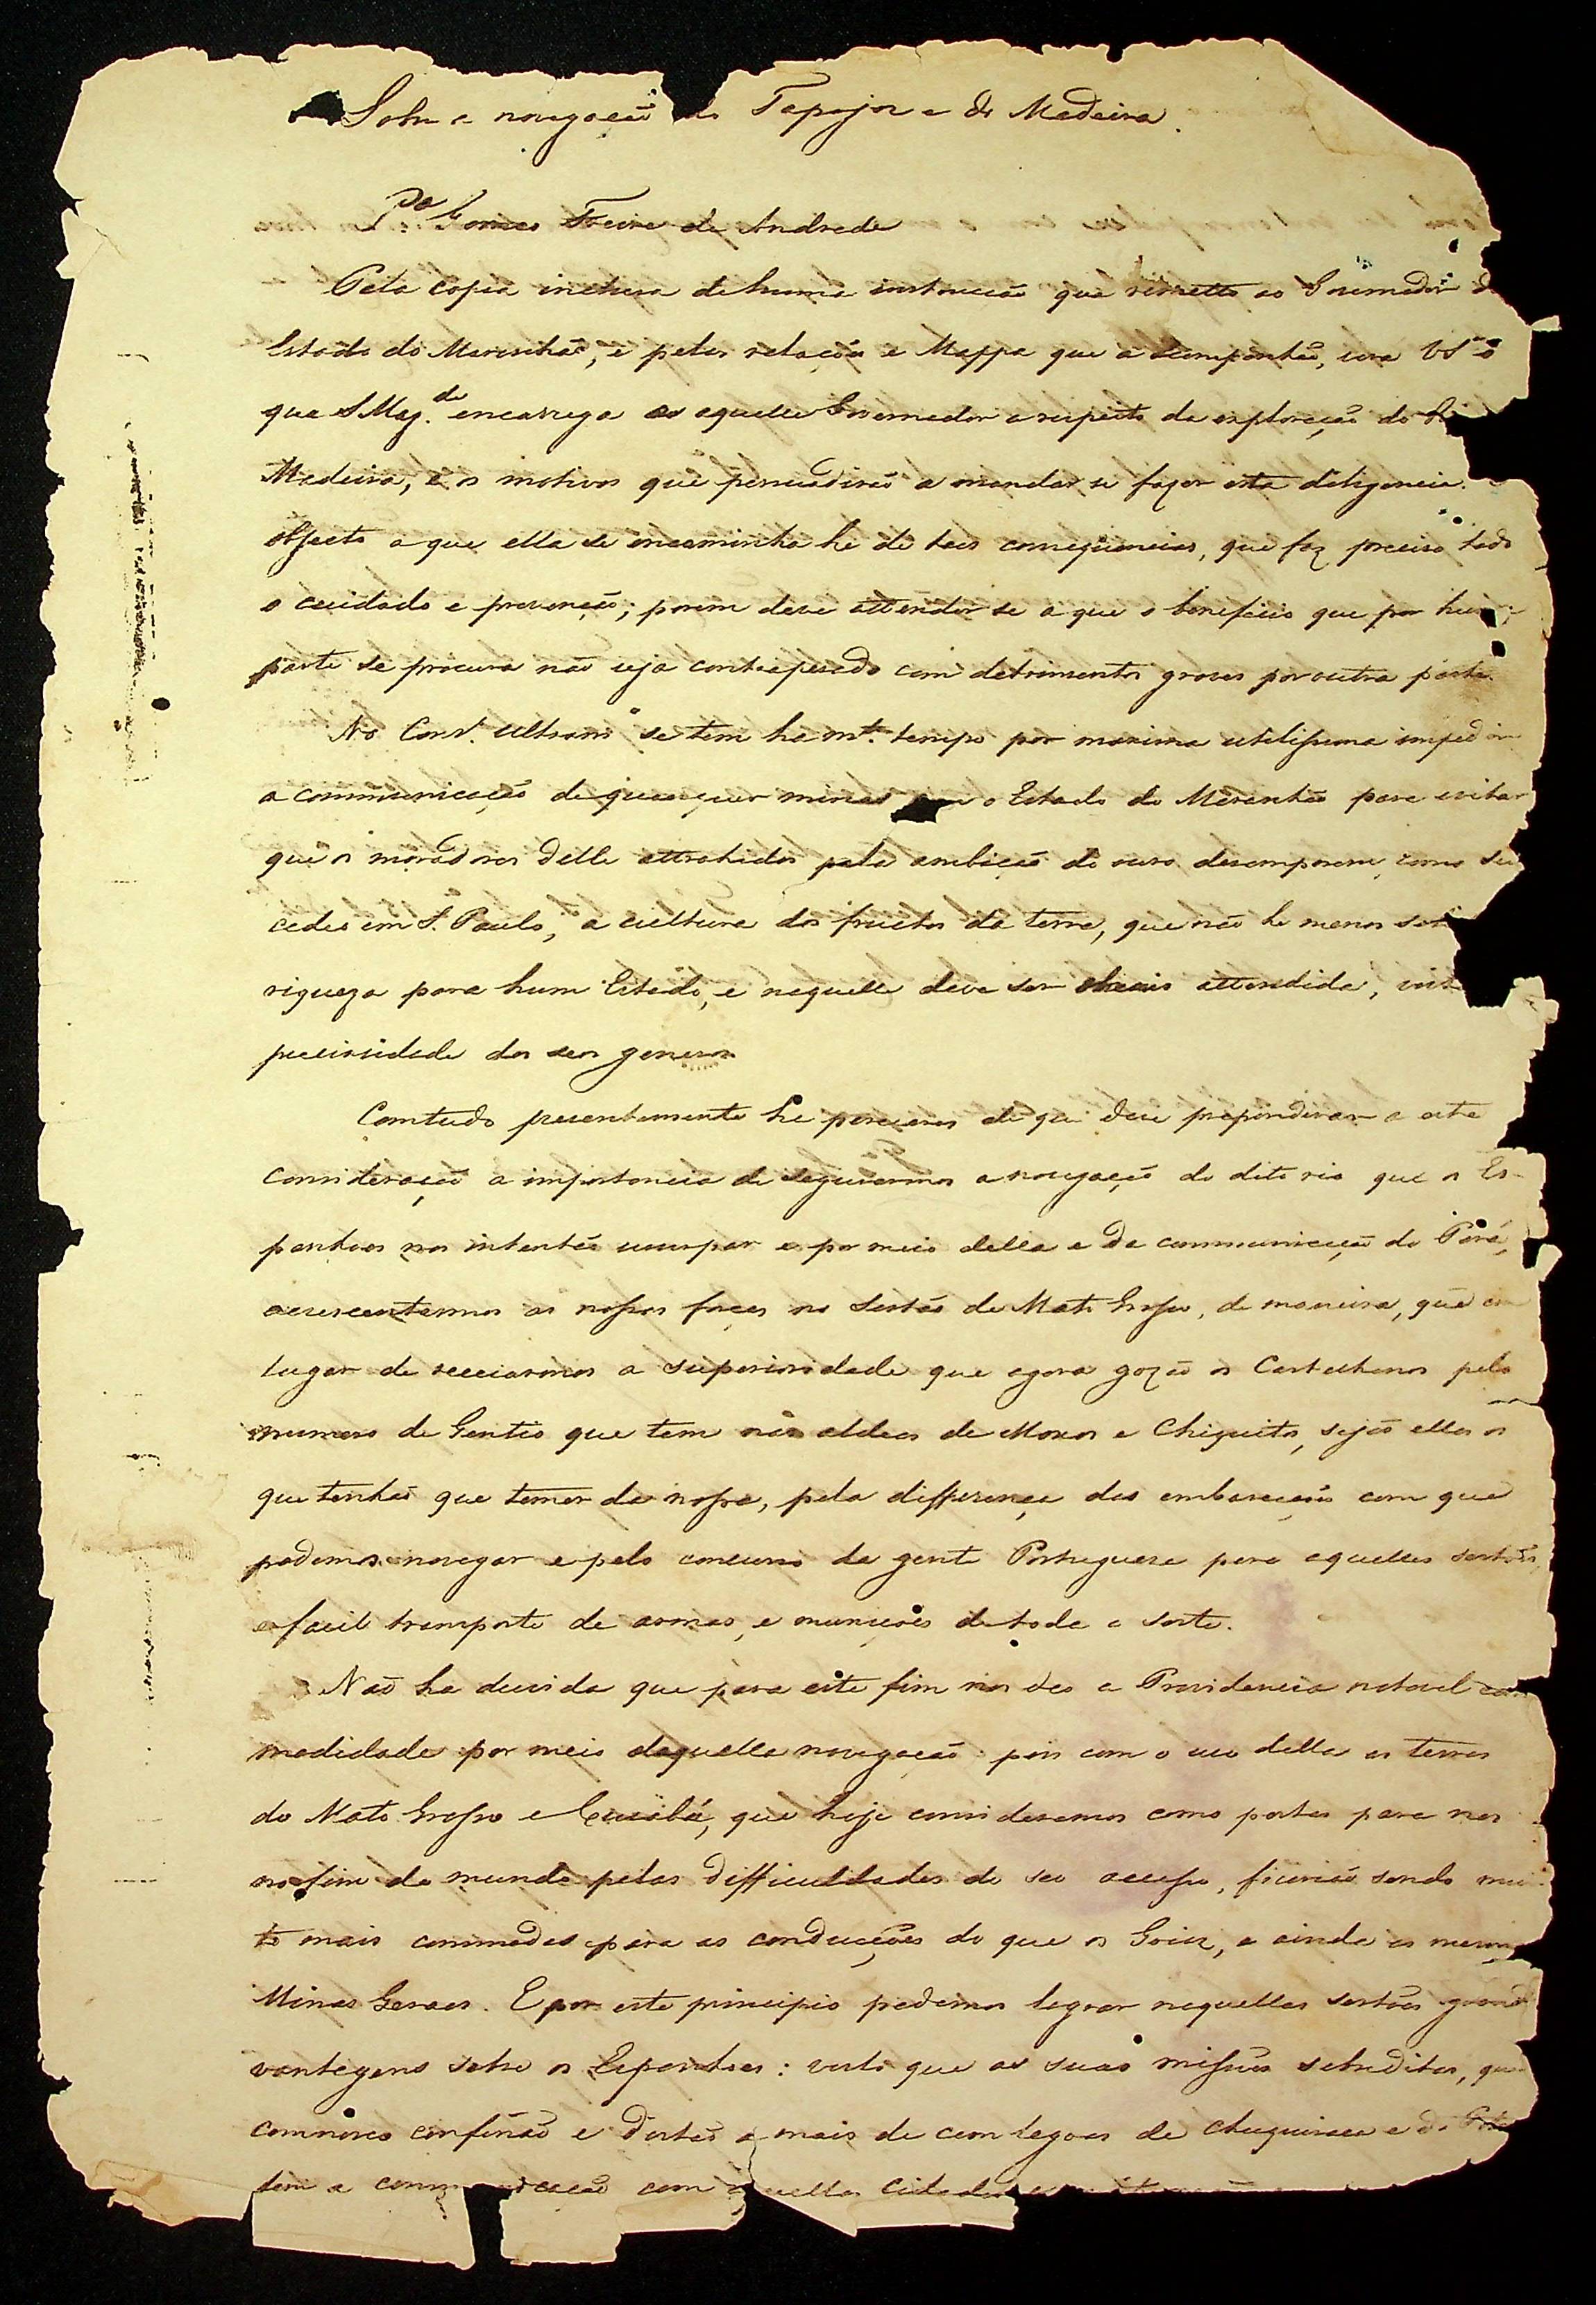 Sobre a navegação do Tapajoz e do Madeira
Pª Gomes Freire de Andrade
Pela copia incluza de huma instrucção que remetto ao Governador do
Estado do Maranhão, e pelas relações e Mappa que a acompanhão, verá VSª o
que S Mag.de encarrega ao aquelle Governador a respeito da exploração do Ri
Madeira, e os motivos que persuadirão a mandar se fazer esta deligencia.
objecto a que ella se encaminha he de taes consequencias, que faz preciso todo
o cuidado e prevenção; porem deve attender se a que o beneficio que por huma
parte se procura não seja contrapesado com detrimentos graves por outra parte.
No Cons.º Ultram.º se tem ha mt.º tempo por maxima utilissima impedir
a communicação de quaesquer minas com o Estado do Maranhão para evitar
que os moradores delle attrahidos pela ambição do ouro desamparem, como su
cedeo em S. Paulo, a cultura dos fructos da terra, que não he menos sol
riqueza para hum Estado, e naquelle deve ser mais attendida, vist
preciosidade dos seos generos
Comtudo presentemente he parecer de que deve preponderar a esta
consideração a importancia de segurarmos a navegação do dito rio que os Es-
panhoes nos intentão usurpar e por meio della e da communicação do Pará,
acrescentarmos as nossas forças no Sertão de Mato Grosso, de maneira, que em
lugar de receiarmos a superioridade que agora gozão os Castelhanos pelo
numero de Gentio que tem nas aldeas de Moxos e Chiquitos, sejão elles os
que tenhão que temer da nossa, pela differença das embarcações com que
podemos navegar e pelo concurso da gente Portugueza para aquelles sertões,
e facil transporte de armas, e munições de toda a sorte.
Não ha duvida que para este fim nos deo a Providencia notavel com
modidade por meio daquella navegação: pois com o uso della as terras
do Mato Grosso e Cuiabá, que hoje consideramos como postas para nos
no fim do mundo pelas difficuldades do seo accesso, ficarião sendo mui
to mais commodas para as conducções do que os Goiaz, e ainda as mesmas
Minas Geraes. E por este principio podemos lograr naquelles sertões grand
vantagens sobre os Espanhoes: visto que as suas missões sobreditas, que
comnosco confinão e distão a mais de cem legoas de Chuquisaca e do Poto
tem a communicação com aquellas Cidades